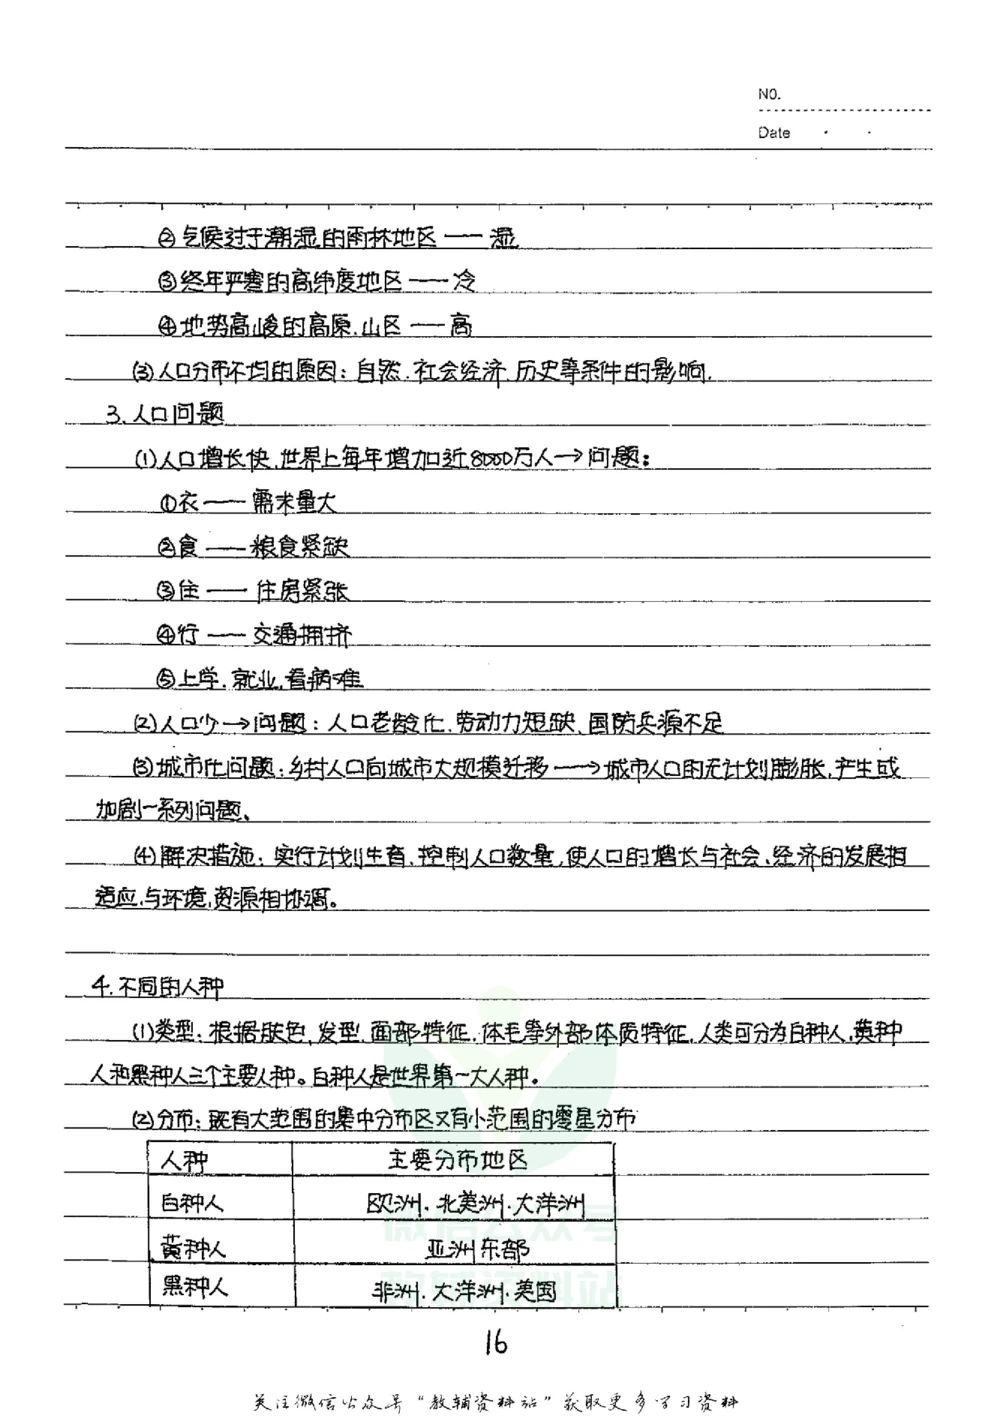 NO.
Date
②气候过于潮湿的雨林地区——湿
③终年严寒的高纬度地区——冷
④地势高峻的高原.山区——高
(3)人口分布不均的原因:自然.社会经济.历史等条件的影响.
3.人口问题
(1)人口增长快.世界上每年增加近8000万人→问题:
①衣——需求量大
②食——粮食紧缺
③住——住房紧张
④行——交通拥挤
⑤上学.就业.看病难
(2)人口少→问题:人口老龄化.劳动力短缺.国防兵源不足
(3)城市化问题:乡村人口向城市大规模迁移——→城市人口的无计划膨胀,产生或
加剧一系列问题。
(4)解决措施:实行计划生育.控制人口数量,使人口的增长与社会、经济的发展相
适应,与环境,资源相协调。
4.不同的人种
(1)类型:根据肤色,发型.面部特征.体毛等外部体质特征.人类可分为白种人,黄种
人和黑种人三个主要人种。白种人是世界第一大人种。
(2)分布:既有大范围的集中分布区又有小范围的零星分布
人种 主要分布地区
白种人 欧洲.北美洲.大洋洲
黄种人 亚洲东部
黑种人 非洲.大洋洲.美国
微信公众号
教辅资料站
16
关注微信公众号“教辅资料站”获取更多学习资料